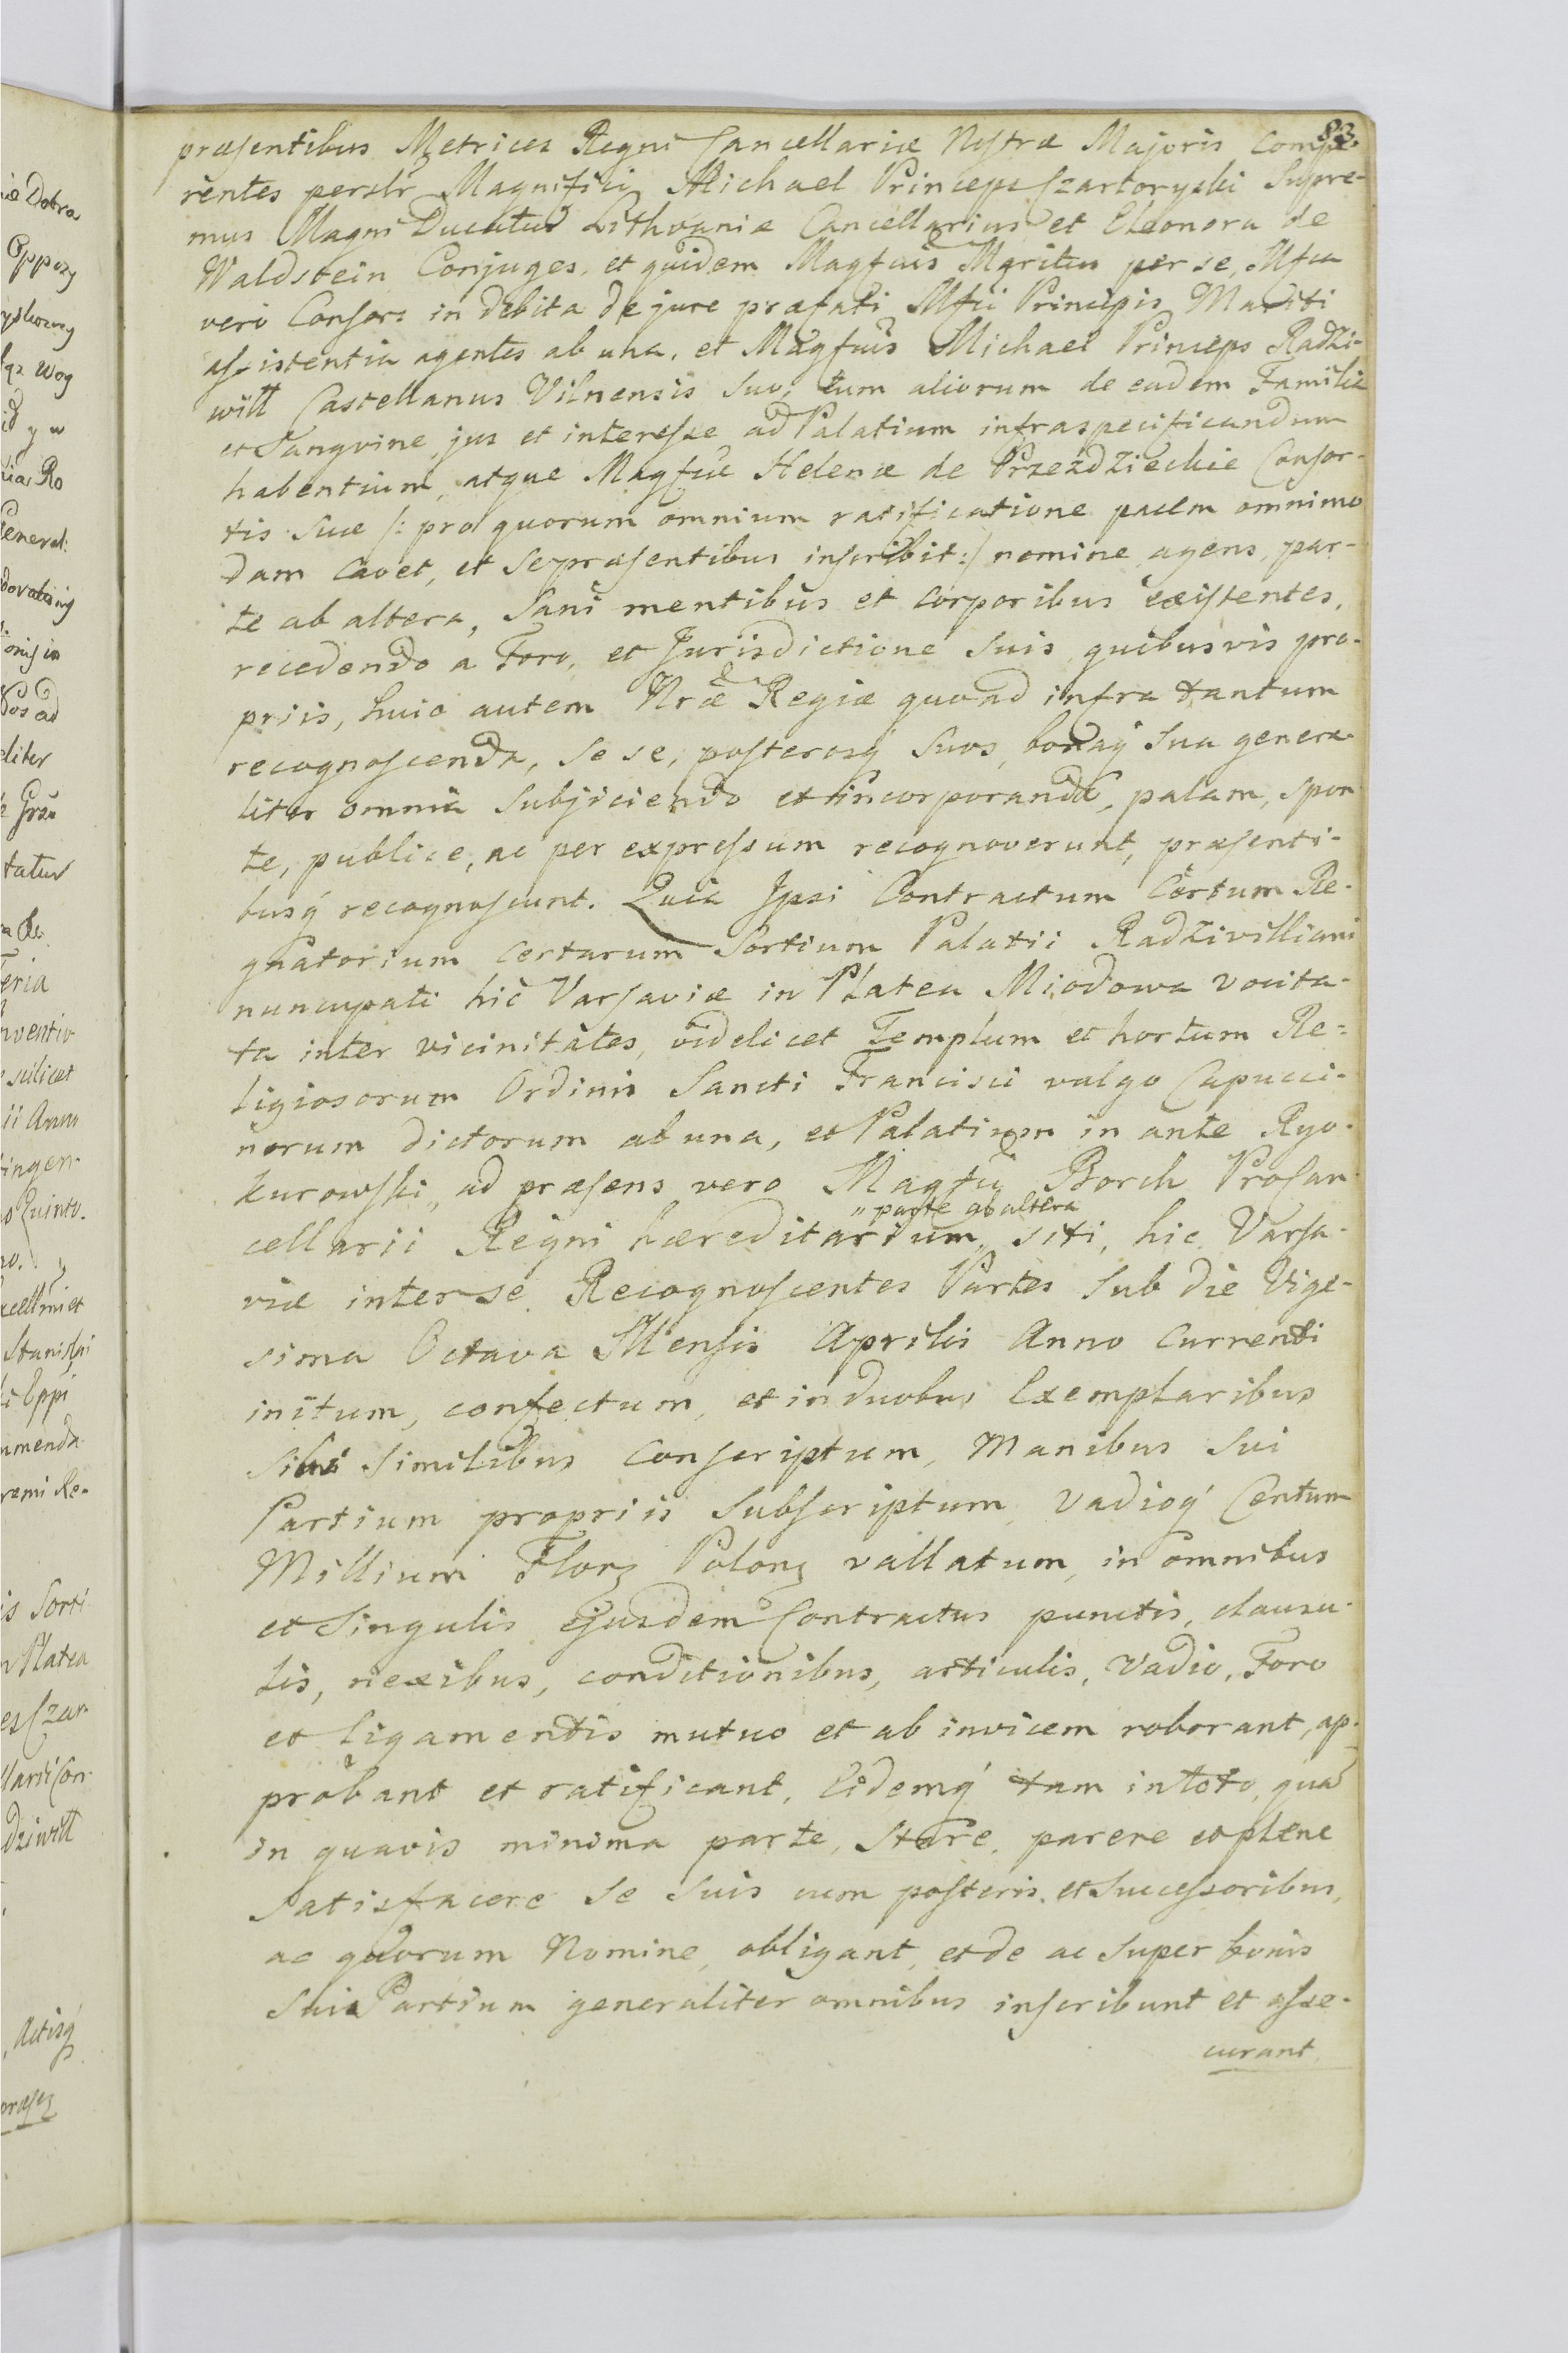 83.
præsentibus Metrices Regni Cancellariæ Nostræ Majoris Compa-
rentes perslr Magnifici Michael Princeps Czartoryski Supre-
mus Magni Ducatus Lithvaniæ Cancellarius et Eleonora de
Waldstein Conjuges, et quidem Magfcus Maritus per se, Mfca
vero Consors in debita de jure præfati Mfci Principis Mariti
assistentia agentes ab una, et Magfcus Michael Princeps Radzi-
will Castellanus Vilnensis suo, tum aliorum de eadem Familia
et Sangvine, jus et interesse ad Palatium infraspecificandum
habentium, atque Magfcæ Helenæ de Przezdzieckie Consor-
tis suæ /: pro quorum omnium ratificatione pacem omnimo
dam cavet, et se præsentibus inscribit :/ nomine agens, par-
te ab altera, Sani mentibus et corporibus existentes,
recedendo a Foro, et Jurisdictione suis quibusvis pro-
priis, huic autem Nræ Regiæ quoad infra tantum
recognoscenda, se se, posterosq́ suos, bonaq́ sua genera-
liter omnia subjiciendo et incorporando, palam, spon
te, publice, ac per expressum recognoverunt, præsenti-
busq́ recognoscunt. Quia Ipsi Contractum Certum Re-
gnatorium certarum Sortium Palatii Radziwilliani
nuncupati hic Varsaviæ in Platea Miodowa vocita-
ta inter vicinitates, videlicet Templum et hortum Re-
ligiosorum Ordinis Sancti Francisci vulgo Capucci-
norum dictorum ab una, et Palatium in ante Ryo-
kurowski, ad præsens vero Magfci Borch Procan
cellarii Regni hæreditarium „ parte ab altera siti, hic Varsa-
viæ inter se Recognoscentes Partes sub die Vige-
sima Octava Mensis Aprilis Anno Currenti
initum, confectum, et in duobus Exemplaribus
sibi similibus conscriptum, Manibus sui
Partium propriis subscriptum, vadioq́ Centum
Millium Flor Polon vallatum, in omnibus
et singulis ejusdem Contractus punctis, clausu-
lis, nexibus, conditionibus, articulis, Vadio, Foro
et ligamentis mutuo et ab invicem roborant, ap-
probant et ratificant, Eidemq́ tam in toto, qua
in quavis minima parte, stare, parere et plene
satisfacere se suis cum posteris, et Successoribus,
ac quorum Nomine, obligant, et de ac super bonis
suis Partium generaliter omnibus inscribunt et asse-
curant.